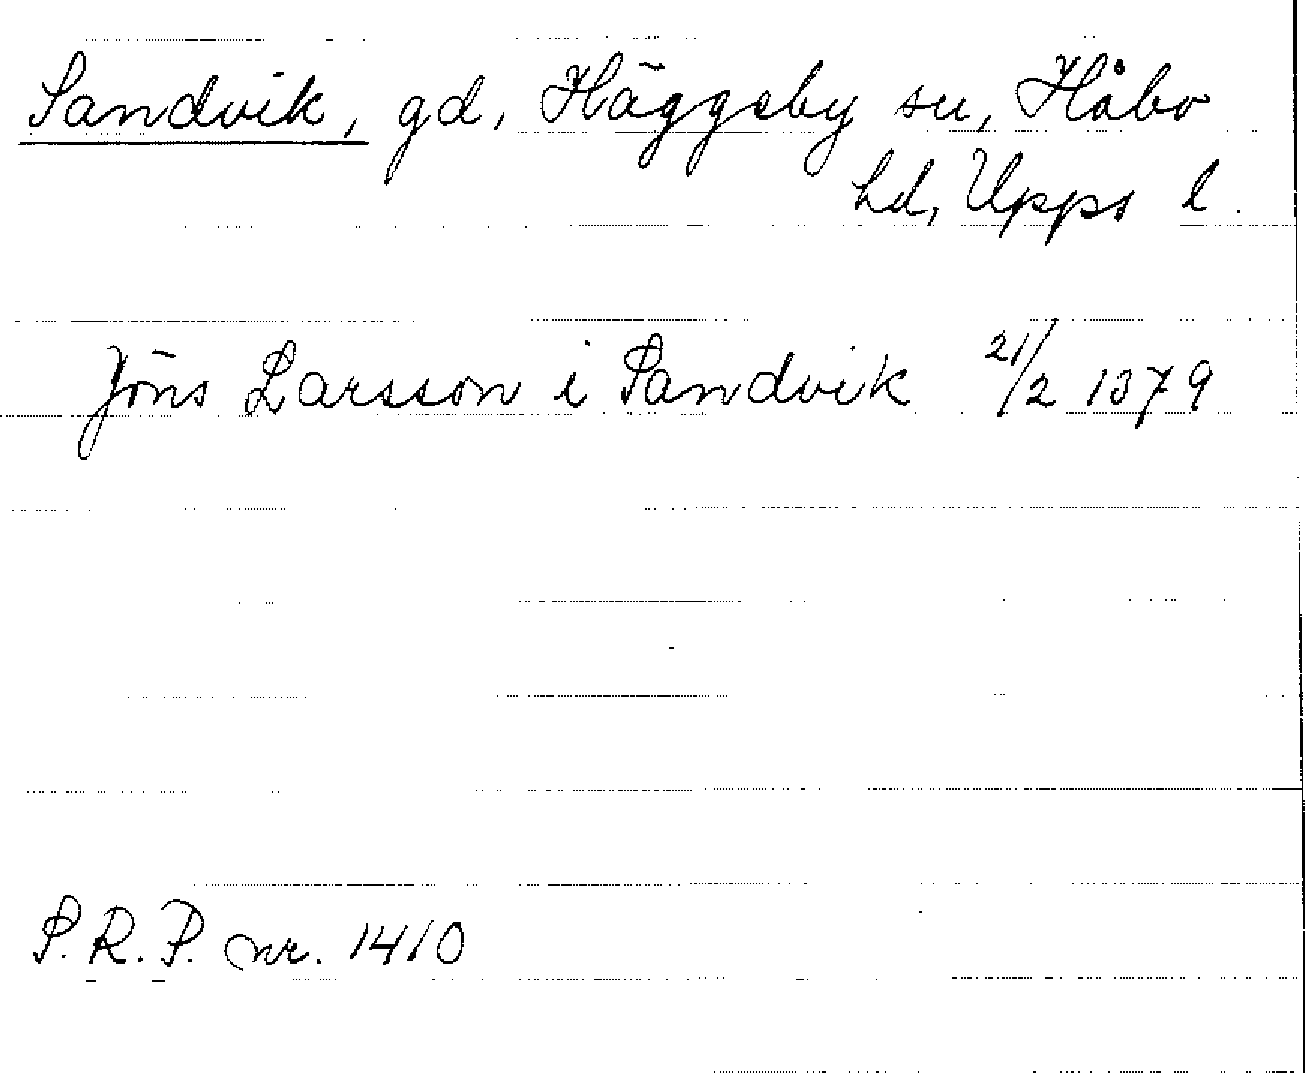 Sandvik, gd, Häggeby sn, Håbo
hd, Upps l.
Jöns Larsson i Sandvik 21/2 1379
S.R.P. nr. 1410